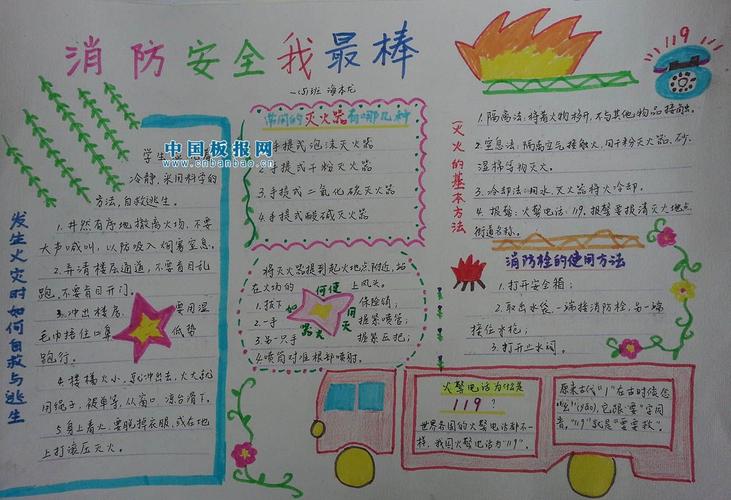 消防安全我最棒
119
一(5)班
中国板报网
www.cnbanbao.cn
发生火灾时如何自救与逃生
冷静,采用科学的
方法,自救逃生。
1.井然有序地撤离火场,不要
大声喊叫,以防吸入烟雾窒息。
2.弄清楼层通道,不要盲目乱
跑,不要盲目开门。
3.冲出楼房 要用湿
毛巾捂住口鼻 低势
跑行。
4.楼梯火小,
用绳子,被单等,从窗口、凉台滑下。
5.身上着火,要脱掉衣服,或在地
上打滚压灭火。
常问的灭火器有哪几种
1.手提式泡沫灭火器
2.手提式干粉灭火器
3.手提式二氧化碳灭火器
4.手提式酸碱灭火器
如何使用灭火器
将灭火器提到起火地点附近,站
在火场的 上风头。
1.拔下 保险销;
2.一手 握紧喷管;
3.另一只手 握紧压把;
4.喷筒对准根部喷射。
灭火的基本方法
1.隔离法:将着火物移开,不与其他物品接触。
2.窒息法:隔离空气接触火,用干粉灭火器、砂、
湿棉等物灭火。
3.冷却法:用水、灭火器将火冷却。
4.报警:火警电话:119.报警要报清灭火地点
街道名称。
消防栓的使用方法
1.打开安全箱;
2.取出水袋,一端接消防栓,另一端
接住水枪;
3.打开止水阀。
火警电话为什是
119?
世界各国的火警电话都不一
样,我国火警电话为"119"。
原来古代"1"在古时候念
"幺"(yāo),它跟"要"字同
音,"119"就是"要要救"。